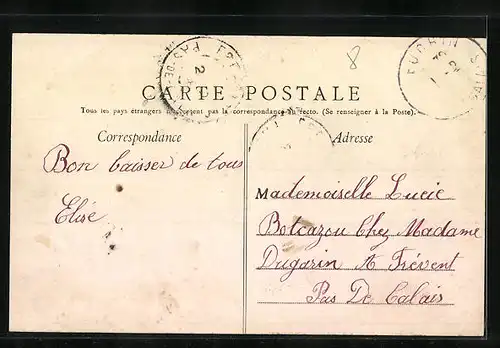 8
CARTE POSTALE
Tous les pays étrangers n'acceptent pas la correspondance au recto. (Se renseigner à la Poste).
Correspondance
Adresse
Bon baisser de tous
Elise
Mademoiselle Lucie
Botcazou Chez Madame
Dugarin A Frévent
Pas De Calais